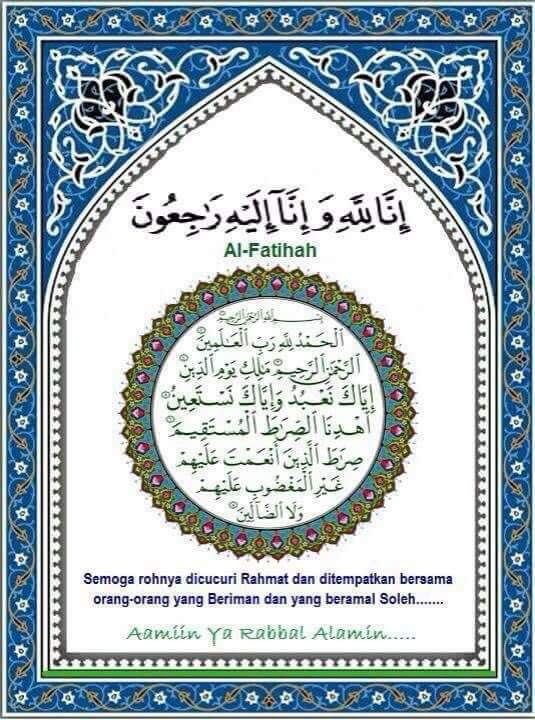 إِنَّا لِلَّهِ وَإِنَّآ إِلَيْهِ رَٰجِعُونَ
Al-Fatihah
بِسْمِ اللَّهِ الرَّحْمَٰنِ الرَّحِيمِ
الْحَمْدُ لِلَّهِ رَبِّ الْعَٰلَمِينَ
الرَّحْمَٰنِ الرَّحِيمِ مَٰلِكِ يَوْمِ الدِّينِ
إِيَّاكَ نَعْبُدُ وَإِيَّاكَ نَسْتَعِينُ
اهْدِنَا الصِّرَٰطَ الْمُسْتَقِيمَ
صِرَٰطَ الَّذِينَ أَنْعَمْتَ عَلَيْهِمْ
غَيْرِ الْمَغْضُوبِ عَلَيْهِمْ
وَلَا الضَّالِّينَ
Semoga rohnya dicucuri Rahmat dan ditempatkan bersama
orang-orang yang Beriman dan yang beramal Soleh.......
Aamiin Ya Rabbal Alamin.....